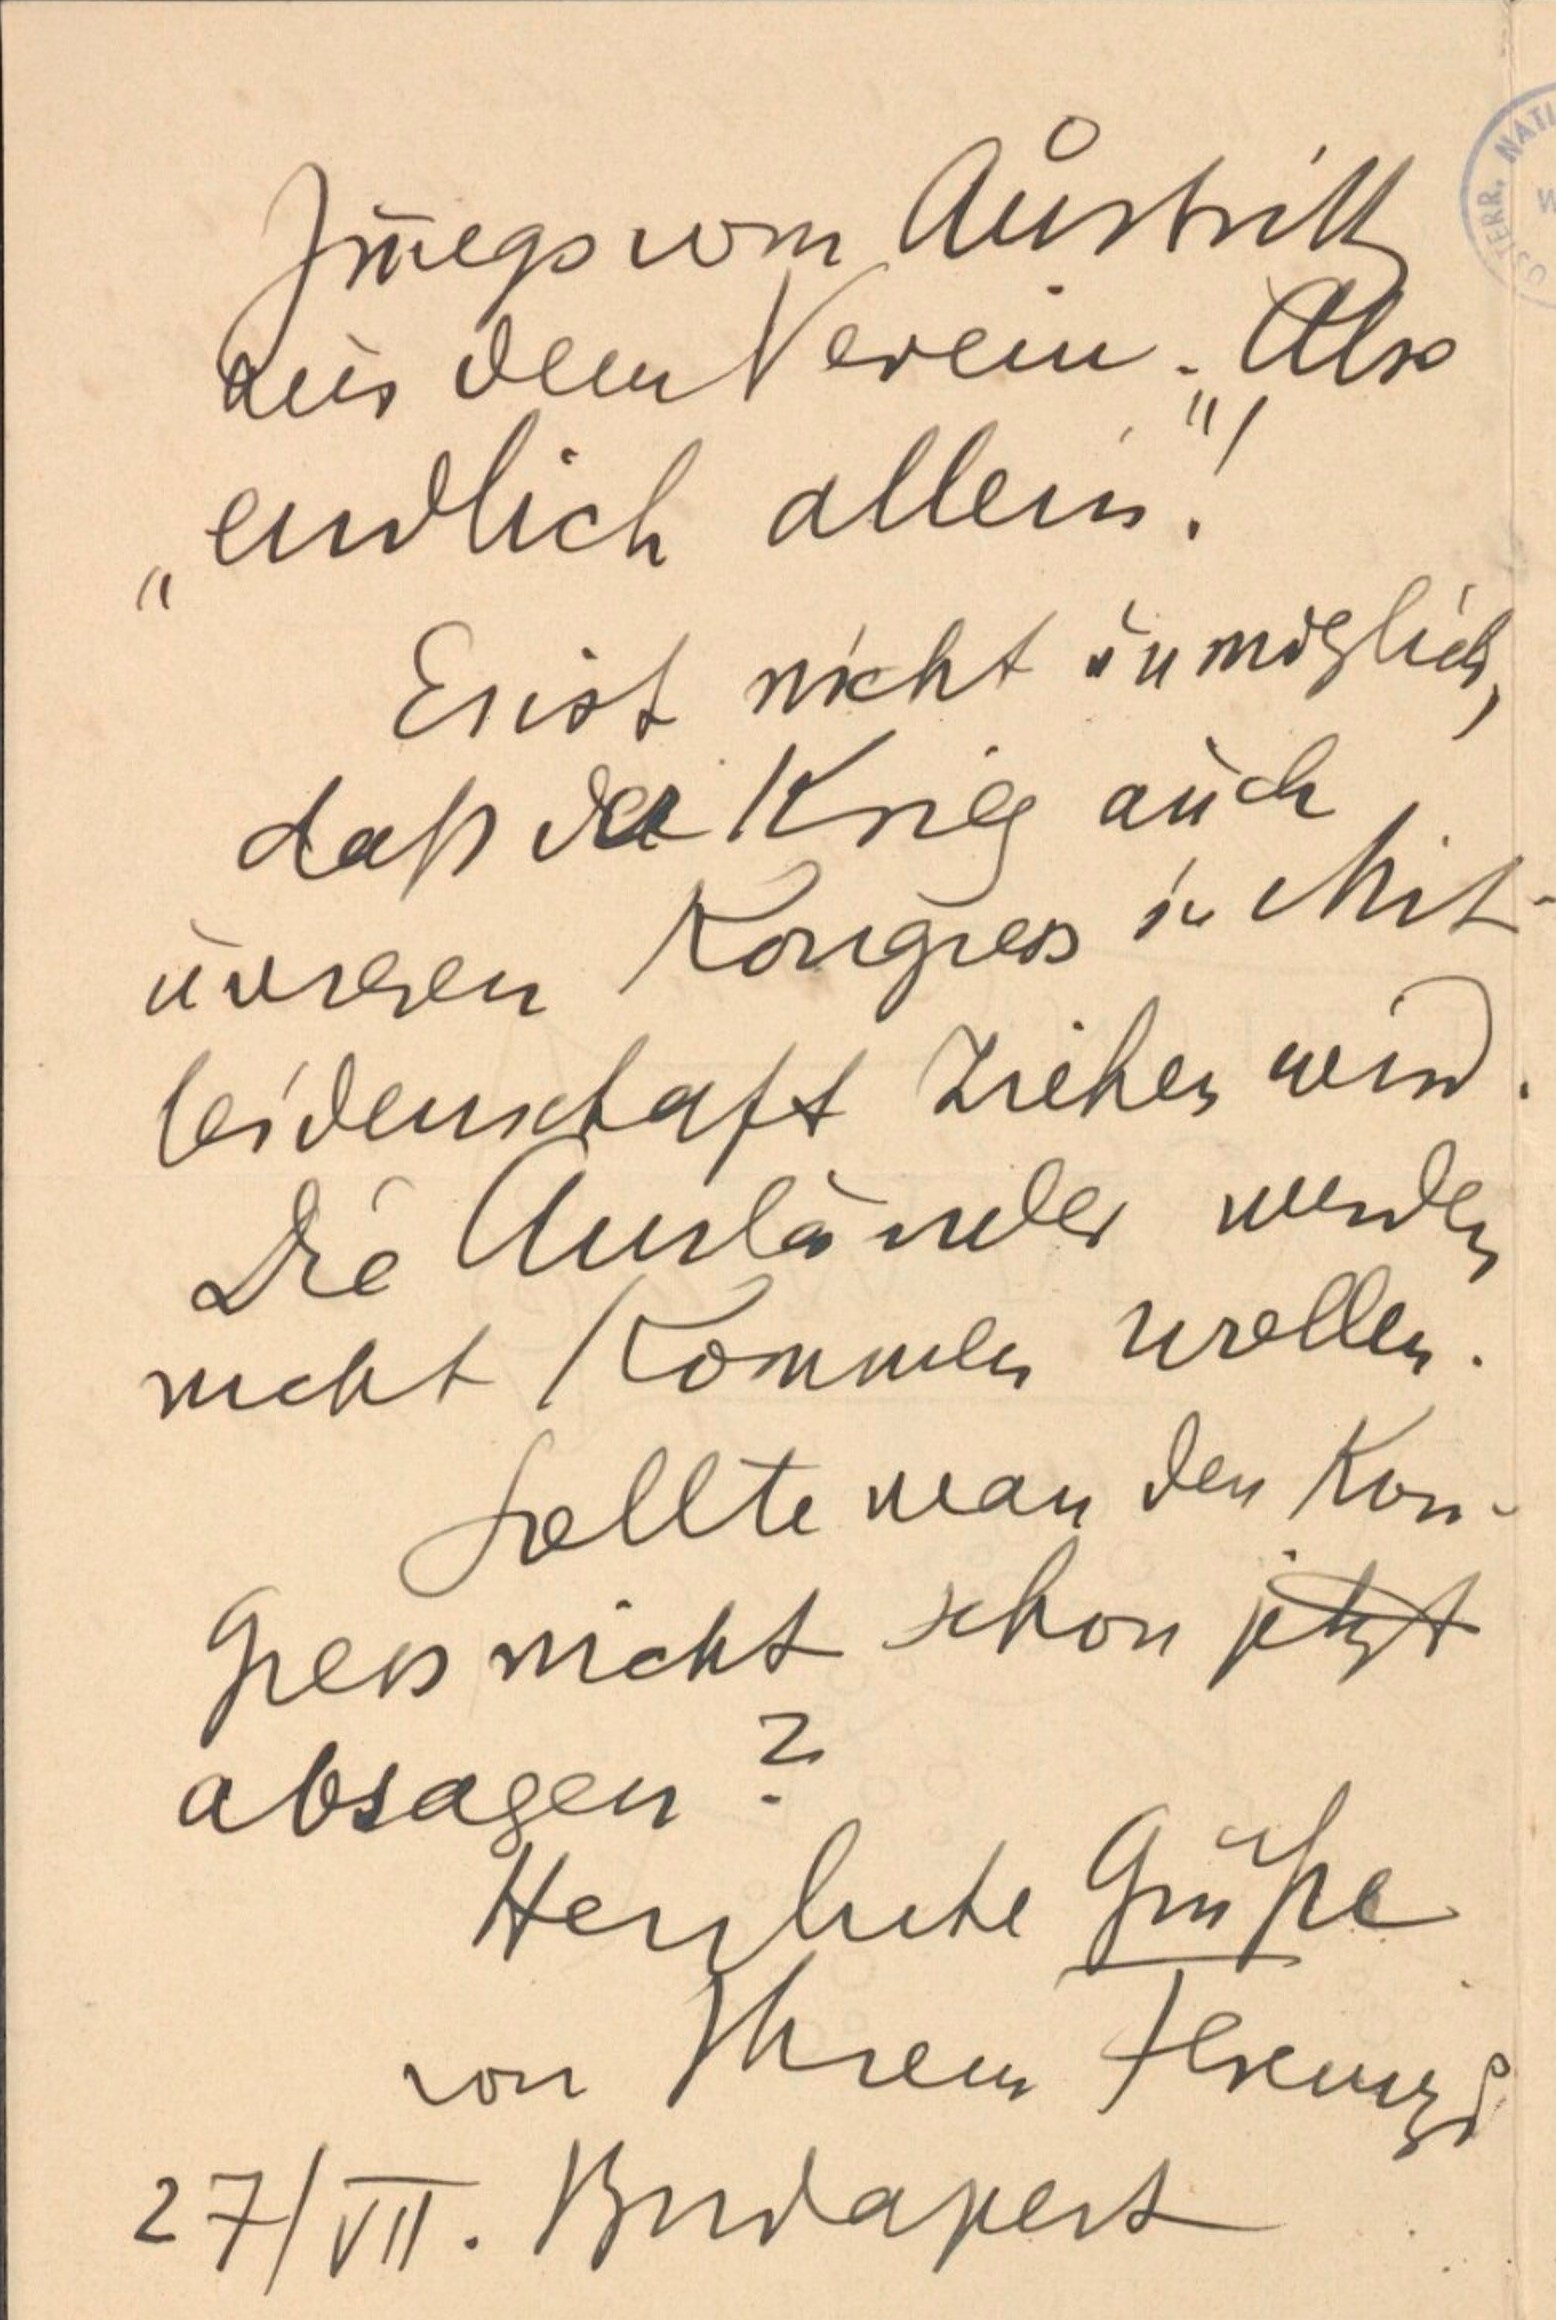 Jungs vom Austritt
aus dem Verein. Also
„endlich allein“!
Es ist nicht unmöglich,
daß der Krieg auch
unseren Kongress in Mit-
leidenschaft ziehen wird.
Die Ausländer werden
nicht kommen wollen.
Sollte man den Kon-
gress nicht schon jetzt
absagen?
Herzlichste Grüße
von Ihrem Ferenczi
27/VII. Budapest
ERR. NATI